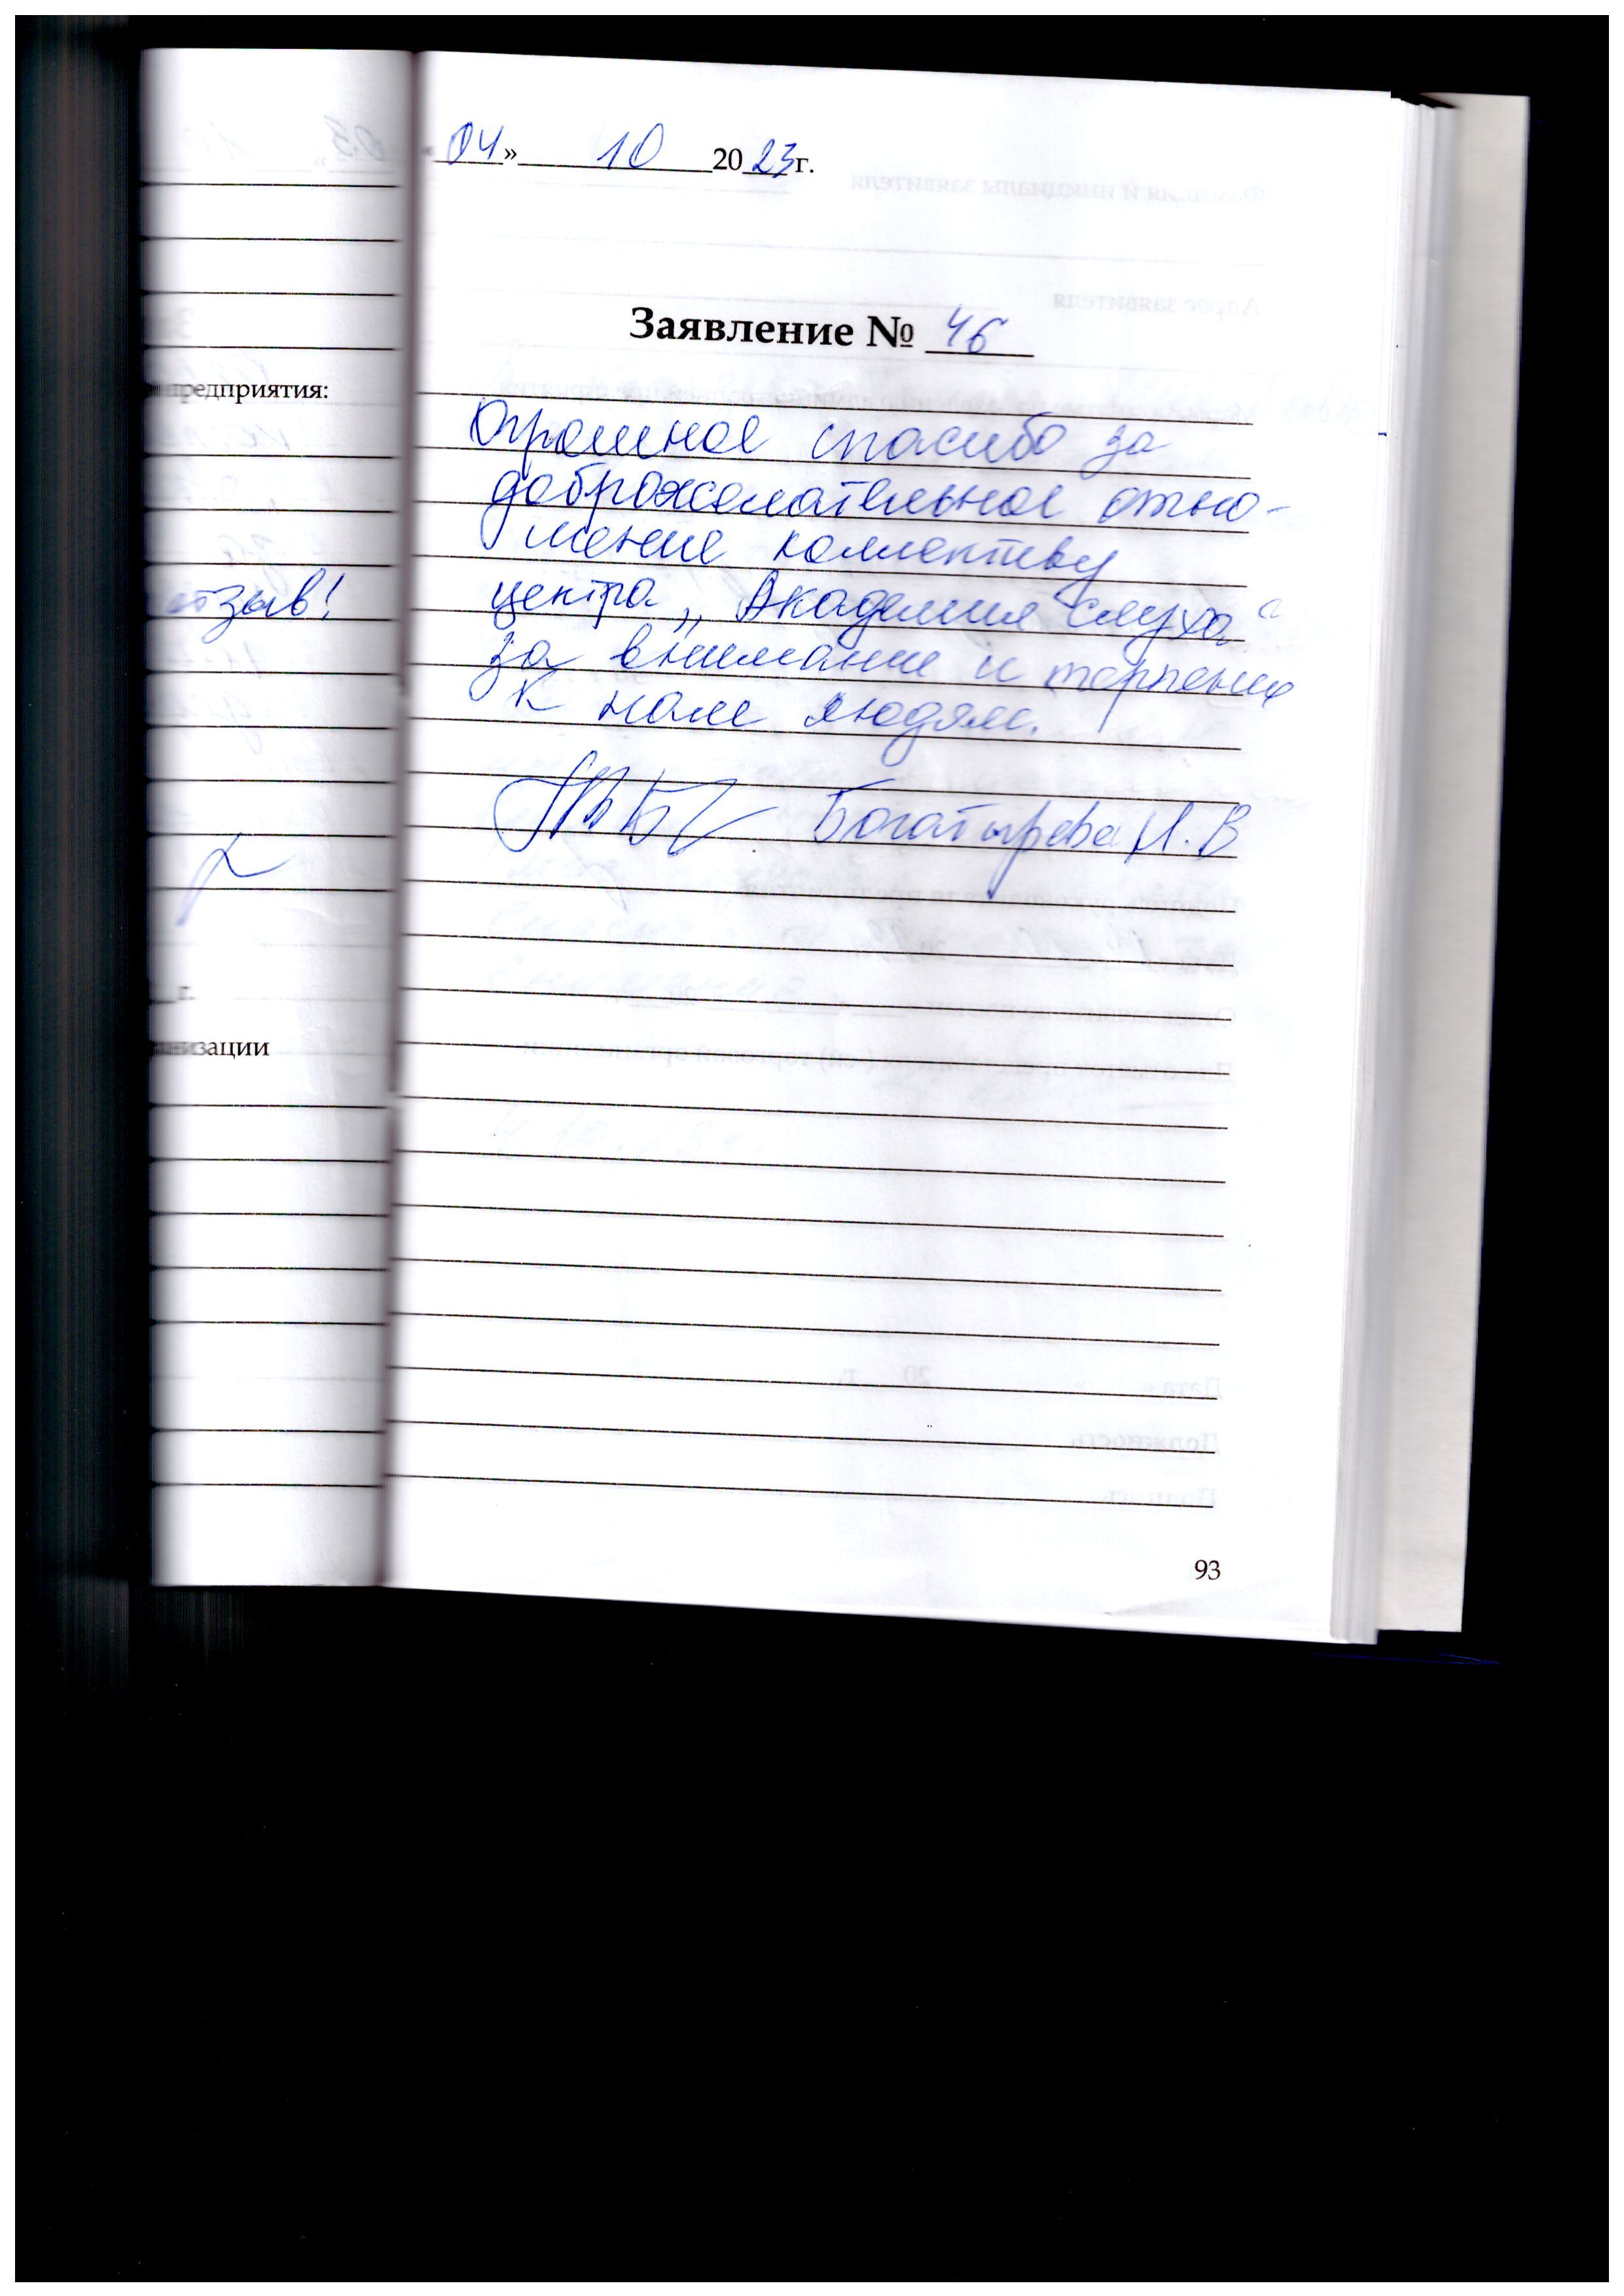 предприятия:
отзыв!
г.
низации
«04» 10 2023г.
Заявление № 46
Огромное спасибо за
доброжелательное отно-
шение коллективу
центра „Академия слуха“
за внимание и терпение
к нам людям.
Богатырева Н.В
93